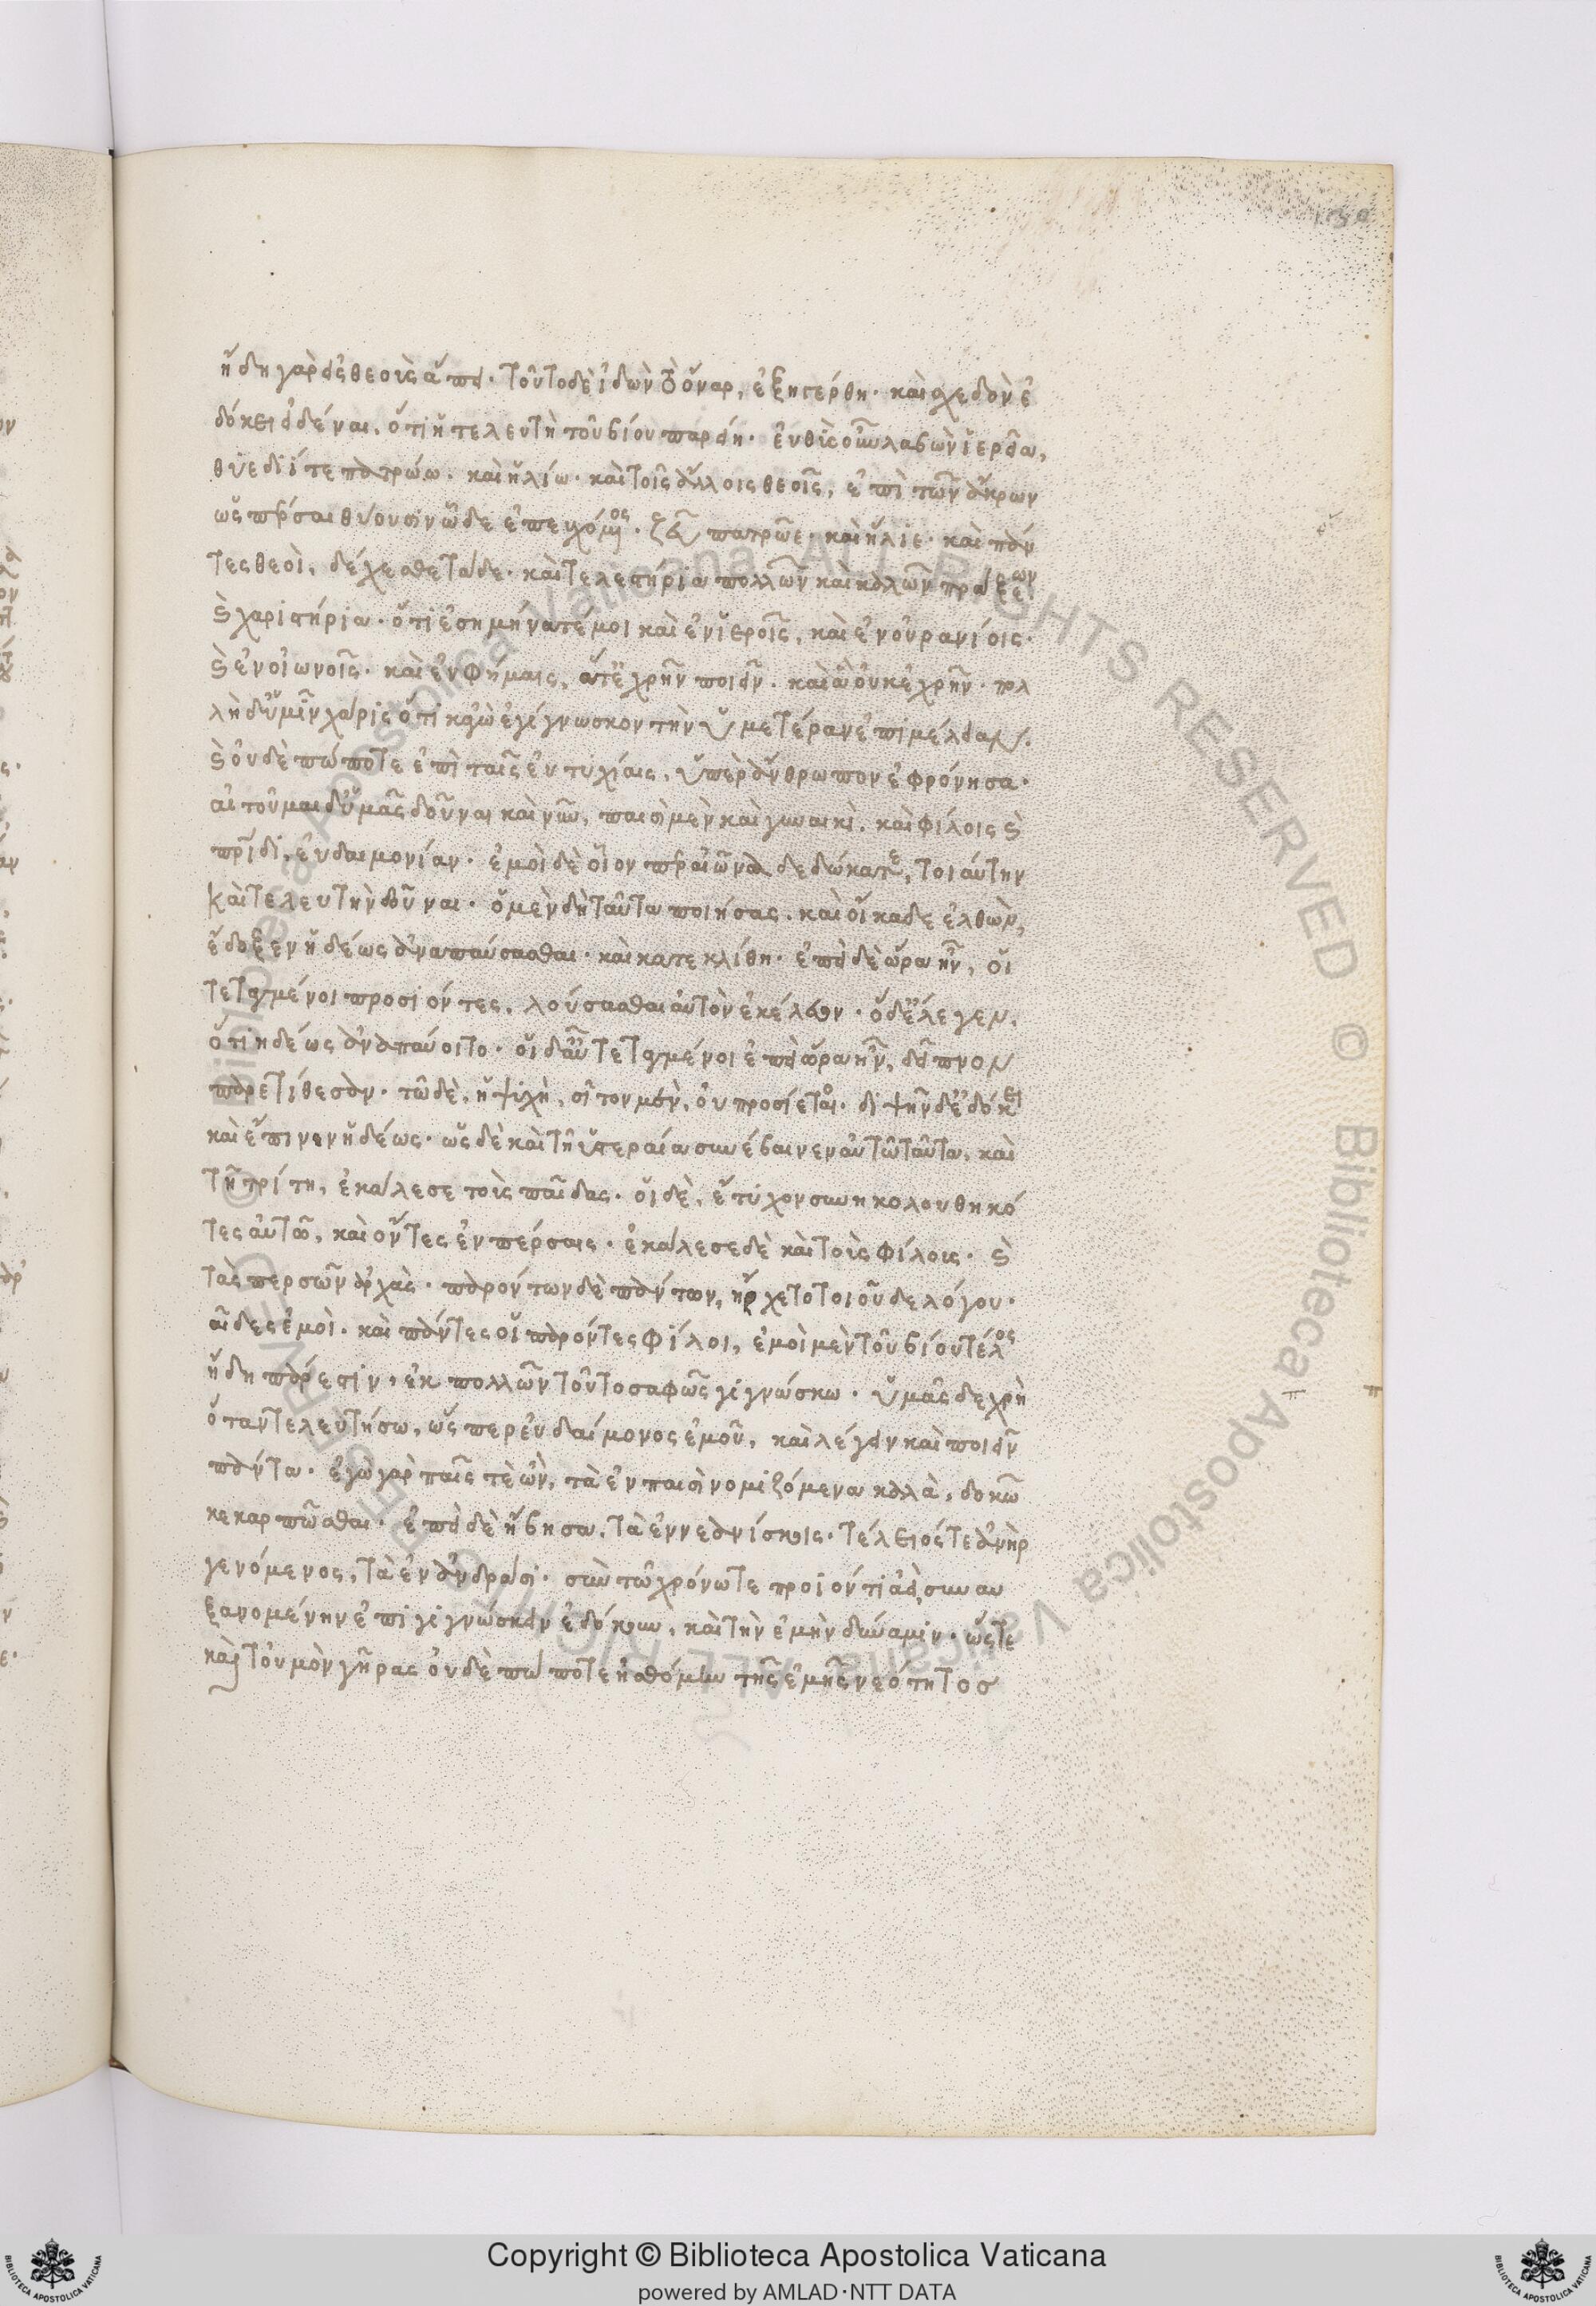 ἤδη γὰρ εἰς θεοὺς ἄπει. τοῦτο δὲ ἰδὼν τὸ ὄναρ, ἐξηγέρθη. καὶ σχεδὸν ἐ
δόκει εἰδέναι, ὅτι ἡ τελευτὴ τοῦ βίου παρείη. εὐθὺς οὖν λαβὼν ἱερεῖα,
θύε διί τε πατρώω. καὶ ἡλίω. καὶ τοῖς ἄλλοις θεοῖς, ἐπὶ τῶν ἄκρων
ὡς πέρσαι θύουσιν ὧδε ἐπευχόμενος. ζεῦ πατρῶε. καὶ ἥλιε. καὶ πάν
τες θεοὶ, δέχεσθε τάδε. καὶ τελεστήρια πολλῶν καὶ καλῶν πράξεων
καὶ χαριστήρια. ὅτι ἐσημήνατέ μοι καὶ ἐν ἱεροῖς, καὶ ἐν οὐρανίοις.
καὶ ἐν οἰωνοῖς. καὶ ἐν φήμαις, ἅ τ' ἐχρῆν ποιεῖν. καὶ ἃ οὐκ ἐχρῆν. πολ
λὴ δ' ὑμῖν χάρις ὅτι κἀγὼ ἐγίγνωσκον τὴν ὑμετέραν ἐπιμέλειαν.
καὶ οὐδὲ πώποτε ἐπὶ ταῖς εὐτυχίαις, ὑπὲρ ἄνθρωπον ἐφρόνησα.
αἰτοῦμαι δ' ὑμᾶς δοῦναι καὶ νῦν, παισὶ μὲν καὶ γυναικὶ. καὶ φίλοις καὶ
πατρίδι, εὐδαιμονίαν. ἐμοὶ δὲ οἷον περ αἰῶνα δεδώκατε, τοιαύτην
καὶ τελευτὴν δοῦναι. ὁ μὲν δὴ ταῦτα ποιήσας. καὶ οἴκαδε ἐλθὼν,
ἔδοξεν ἡδέως ἀναπαύσασθαι. καὶ κατεκλίθη. ἐπεὶ δὲ ὥρα ἦν, οἱ
τεταγμένοι προσιόντες, λούσασθαι αὐτὸν ἐκέλευον. ὁ δ' ἔλεγεν.
ὅτι ἡδέως ἀναπαύοιτο. οἱ δ' αὖ τεταγμένοι ἐπεὶ ὥρα ἦν, δεῖπνον
παρετίθεσαν. τῶ δὲ, ἡ ψυχὴ, σῖτον μὲν, οὐ προσίετο. διψῆν δ' ἐδόκει
καὶ ἔπινεν ἡδέως. ὡς δὲ καὶ τῇ ὑστεραία συνέβαινεν αὐτῶ ταῦτα, καὶ
τῇ τρίτη, ἐκάλεσε τοὺς παῖδας. οἱ δὲ, ἔτυχον συνηκολουθηκό
τες αὐτῶ, καὶ ὄντες ἐν πέρσαις. ἐκάλεσε δὲ καὶ τοὺς φίλους. καὶ
τὰς περσῶν ἀρχάς. παρόντων δὲ πάντων, ἤρχετο τοιοῦδε λόγου.
αῖδες ἐμοὶ. καὶ πάντες οἱ παρόντες φίλοι, ἐμοὶ μὲν τοῦ βίου τέλος
ἤδη πάρεστιν. ἐκ πολλῶν τοῦτο σαφῶς γιγνώσκω. ὑμᾶς δὲ χρὴ
ὅταν τελευτήσω, ὡς περ εὐδαίμονος ἐμοῦ, καὶ λέγειν καὶ ποιεῖν
πάντα. ἐγὼ γὰρ παῖς τὲ ὢν, τὰ ἐν παισὶ νομιζόμενα καλὰ, δοκῶ
κεκαρπῶσθαι. ἐπεὶ δὲ ἥβησα, τὰ ἐν νεανίσκοις. τέλειός τε ἀνὴρ
γενόμενος, τὰ ἐν ἀνδράσι. σὺν τῶ χρόνω τε προιόντι ἀεὶ, συναυ
ξανομένην ἐπιγιγνώσκειν ἐδόκουν, καὶ τὴν ἐμὴν δύναμιν. ὥστε
καὶ τοὐμὸν γῆρας οὐδὲ πώποτε ἠσθόμην τῆς ἐμῆς νεότητος
Copyright © Biblioteca Apostolica Vaticana
powered by AMLAD·NTT DATA